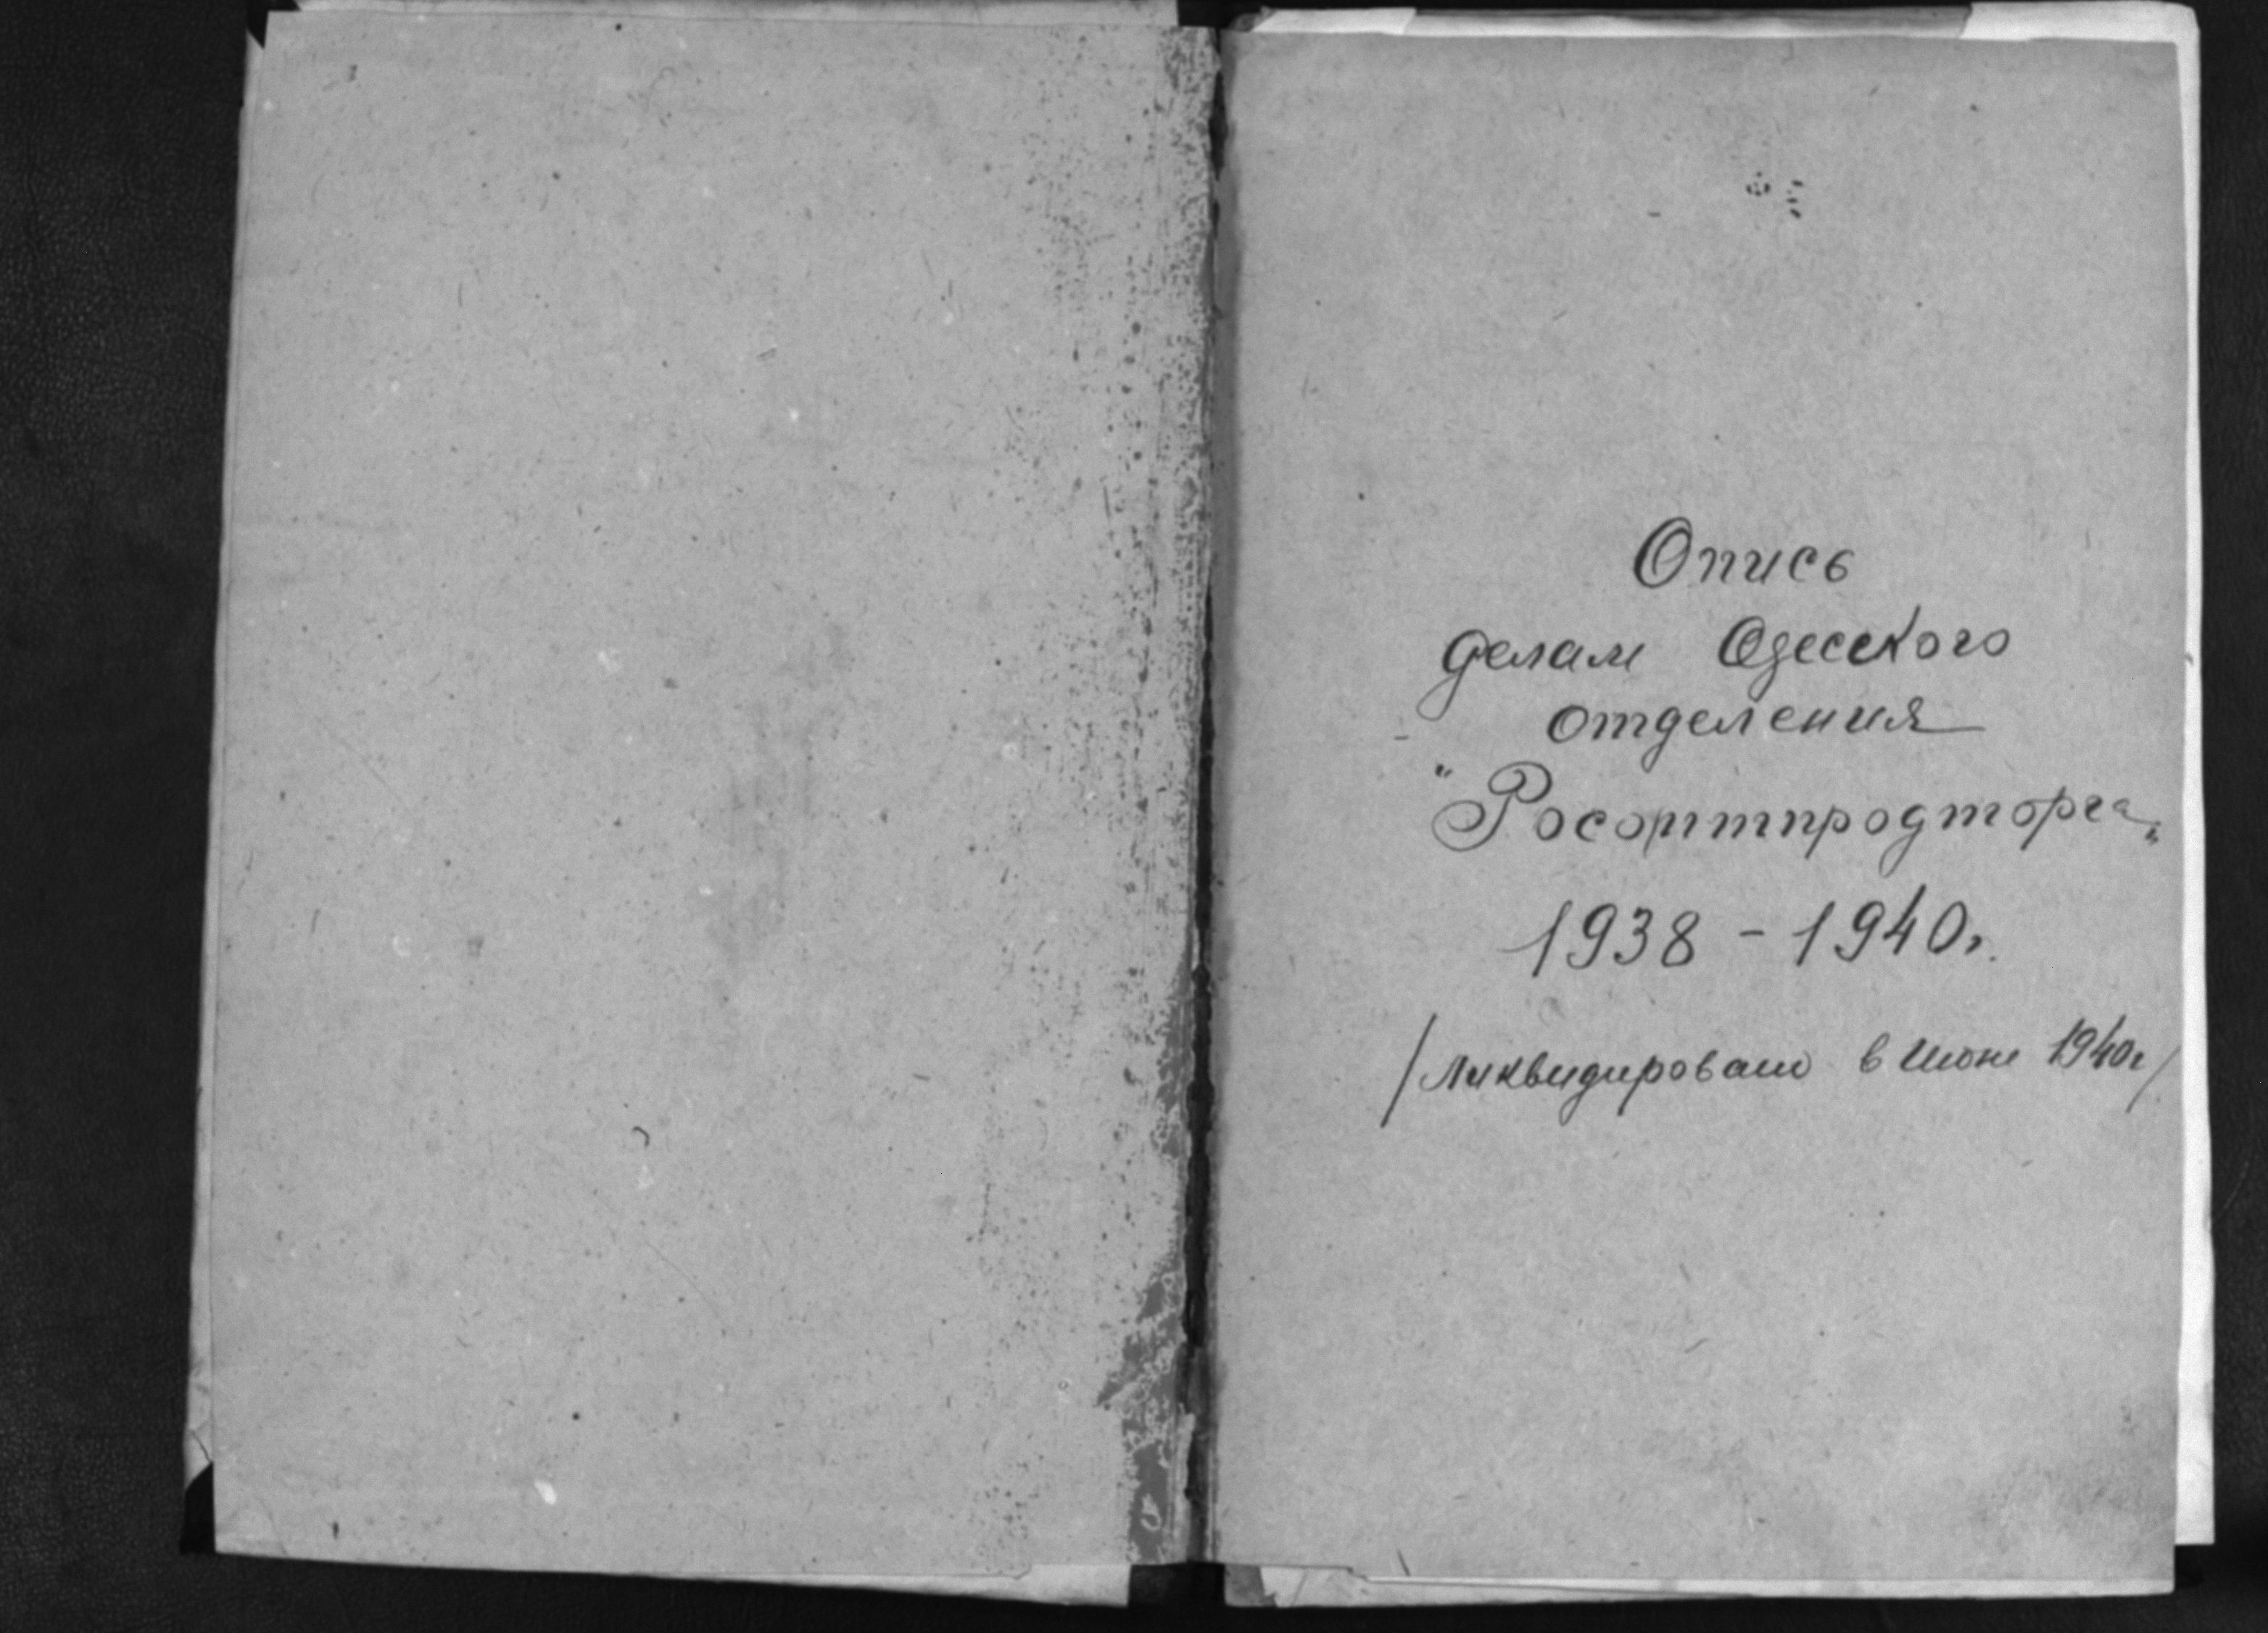 Опись
делам Одесского
отделения
"Росоптпродторга"
1938 - 1940г.
/Ликвидировано в июне 1940г/